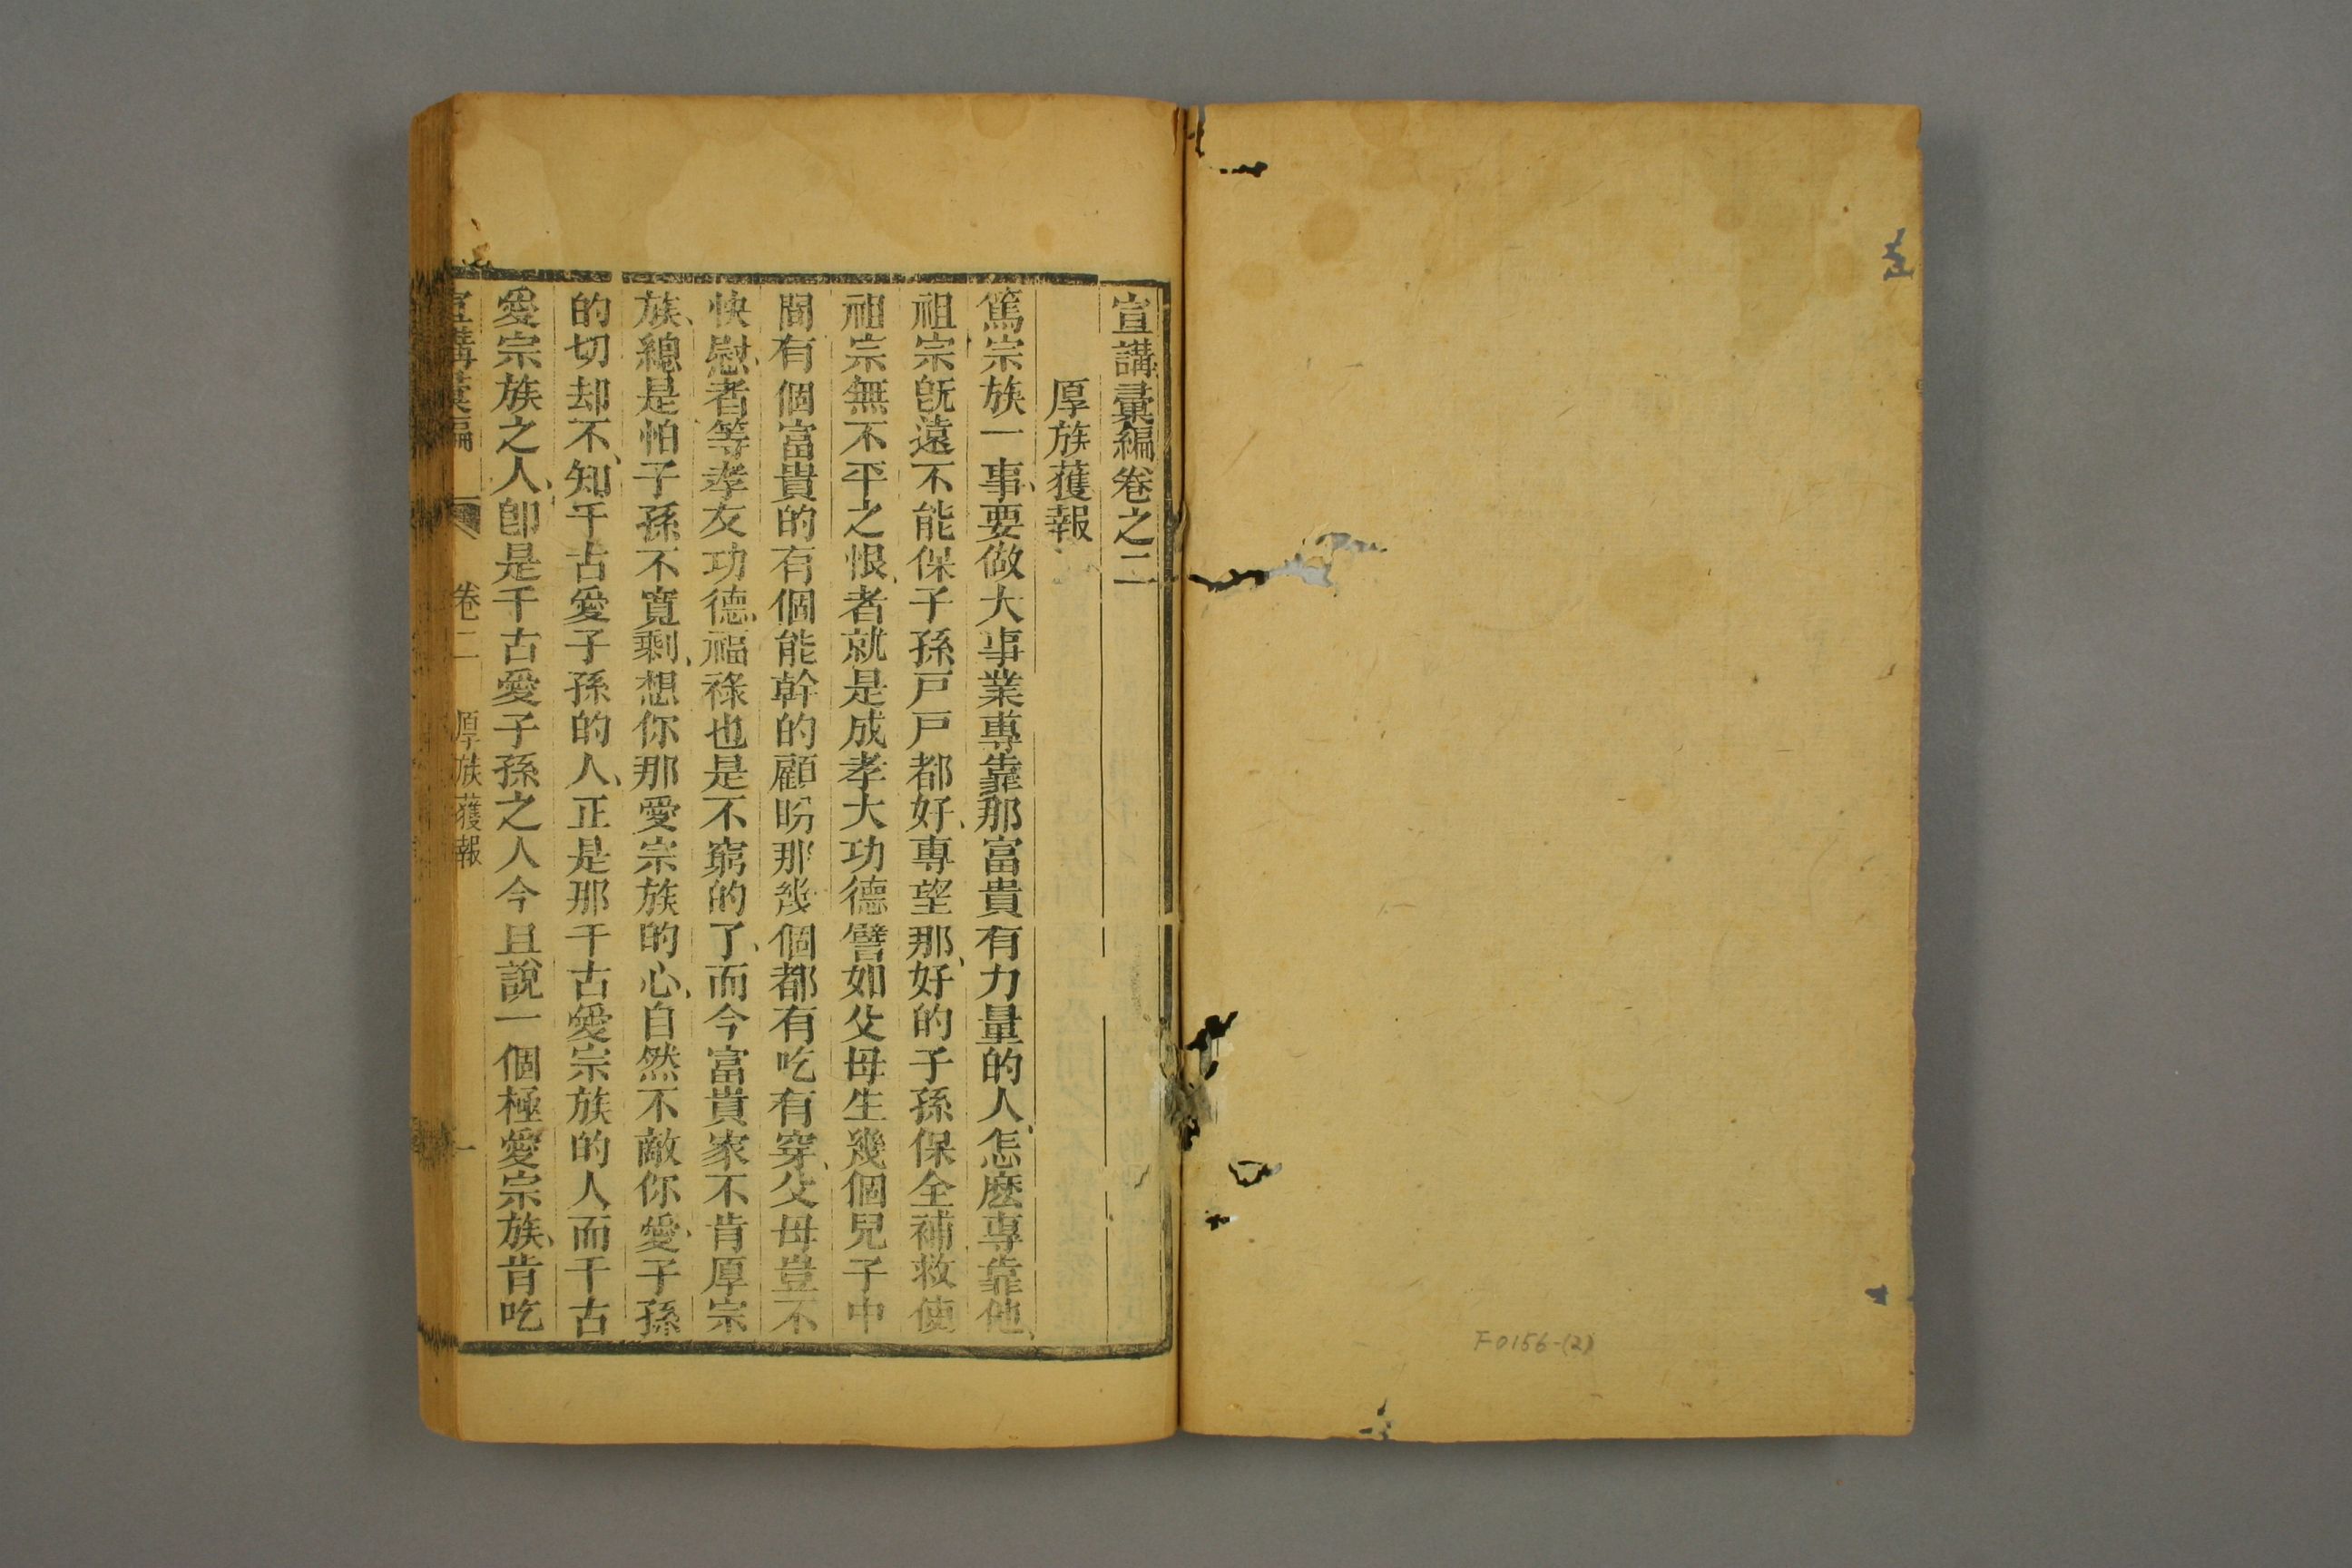 宣講彙編卷之二
厚族獲報
篤宗族一事、要做大事業專靠那富貴有力量的人、怎麽專靠他、
祖宗旣遠不能保子孫戸戸都好、專望那、好的子孫保全補救使
祖宗無不平之恨、者就是成孝大功德譬如父母生幾個兒子中
間有個富貴的有個能幹的顧盼那幾個都有吃有穿、父母豈不
快慰、者等孝友功德、福祿也是不窮的了、而今富貴家不肯厚宗
族、總是怕子孫不寬剩、想你那愛宗族的心、自然不敵你愛、子孫
的切却不、知千古愛子孫的人、正是那千古愛宗族的人而千古
愛宗族之人、卽是千古愛子孫之人今且說一個極愛宗族、肯吃
宣講彙編 卷二 厚族獲報 一
F0156-(2)